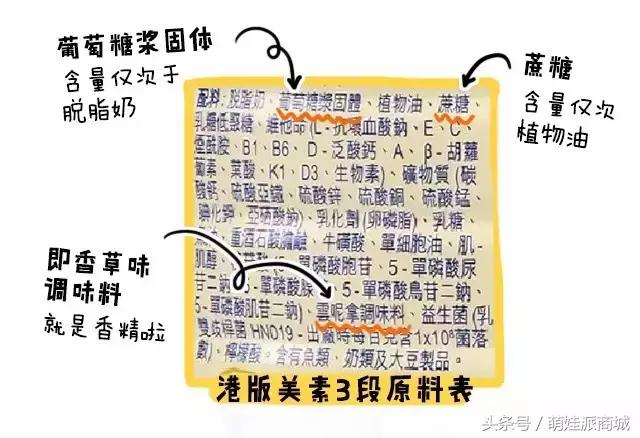 葡萄糖浆固体
含量仅次于
脱脂奶
蔗糖
含量仅次
植物油
即香草味
调味料
就是香精啦
配料:脱脂奶、葡萄糖漿固體、植物油、蔗糖、
乳糖低聚糖、維他命(L-抗壞血酸鈉、E、C、
煙酰胺、B1、B6、D-泛酸鈣、A、β-胡蘿
蔔素、葉酸、K1、D3、生物素)、礦物質(碳
酸鈣、硫酸亞鐵、硫酸鋅、硫酸銅、硫酸錳、
碘化鉀、亞硒酸鈉)、乳化劑(卵磷脂)、乳糖、
重酒石酸膽鹼、牛磺酸、單細胞油、肌-
肌醇、5-單磷酸胞苷、5-單磷酸尿
苷二鈉、5-單磷酸腺、5-單磷酸鳥苷二鈉、
5-單磷酸肌苷二鈉)、雲呢拿調味料、益生菌(乳
雙歧桿菌HN019-出廠時每百克含1x10⁸菌落
數)、檸檬酸。含有魚類、奶類及大豆製品。
港版美素3段原料表
头条号/萌娃派商城